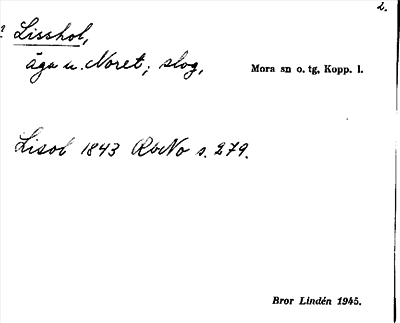 2.
? Lisshol,
äga u. Noret; slog,
Mora sn o. tg, Kopp. l.
Lisol 1843 RbNo s. 279.
Bror Lindén 1945.